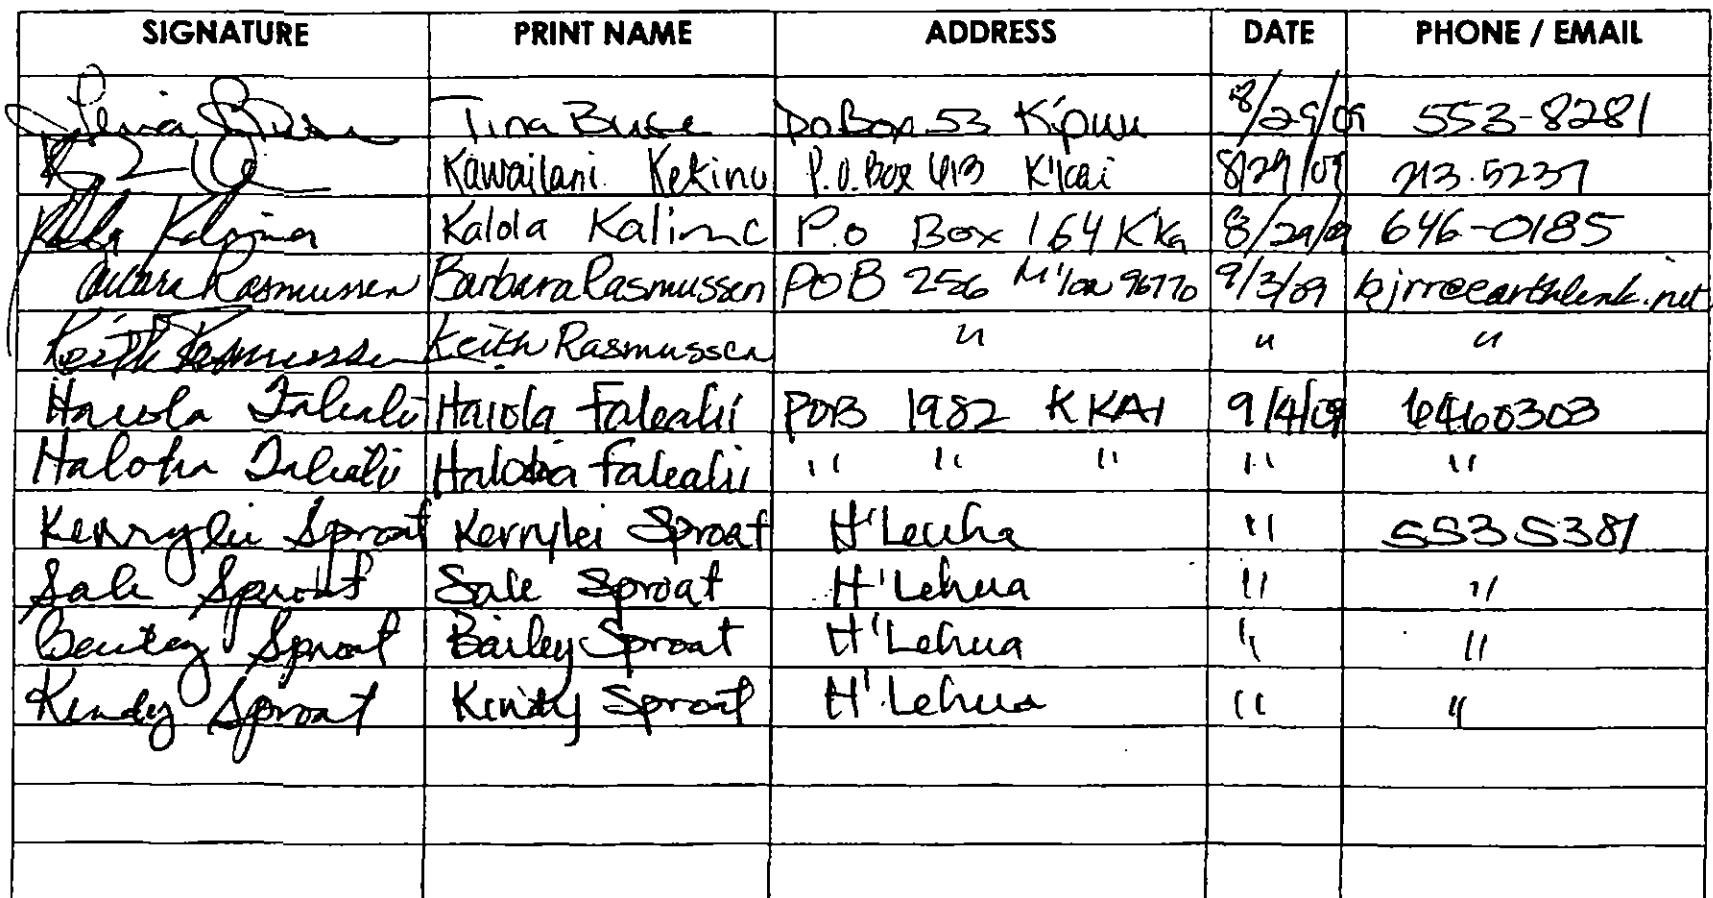 SIGNATURE PRINT NAME ADDRESS DATE PHONE / EMAIL
Tina Buse PO Box 53 K'puu 8/29/09 553-8281
Kawailani Kekino P.O. Box 413 K'kai 8/29/09 213.5237
Kalola Kalima Kalola Kalima P.o Box 164 Kkai 8/29/09 646-0185
Barbara Rasmussen Barbara Rasmussen POB 256 M'loa 96770 9/3/09 bjrr@earthlink.net
Keith Rasmussen Keith Rasmussen " " "
Hawla Falealii Hawla Falealii POB 1982 KKAI 9/4/09 6460303
Halotia Falealii Halotia Falealii " " " " "
Kerrylei Sproat Kerrylei Sproat H'Leuha " 553 5381
Sale Sproat Sale Sproat H'Lehua " "
Bailey Sproat Bailey Sproat H'Lehua " "
Kindy Sproat Kindy Sproat H'Lehua " "